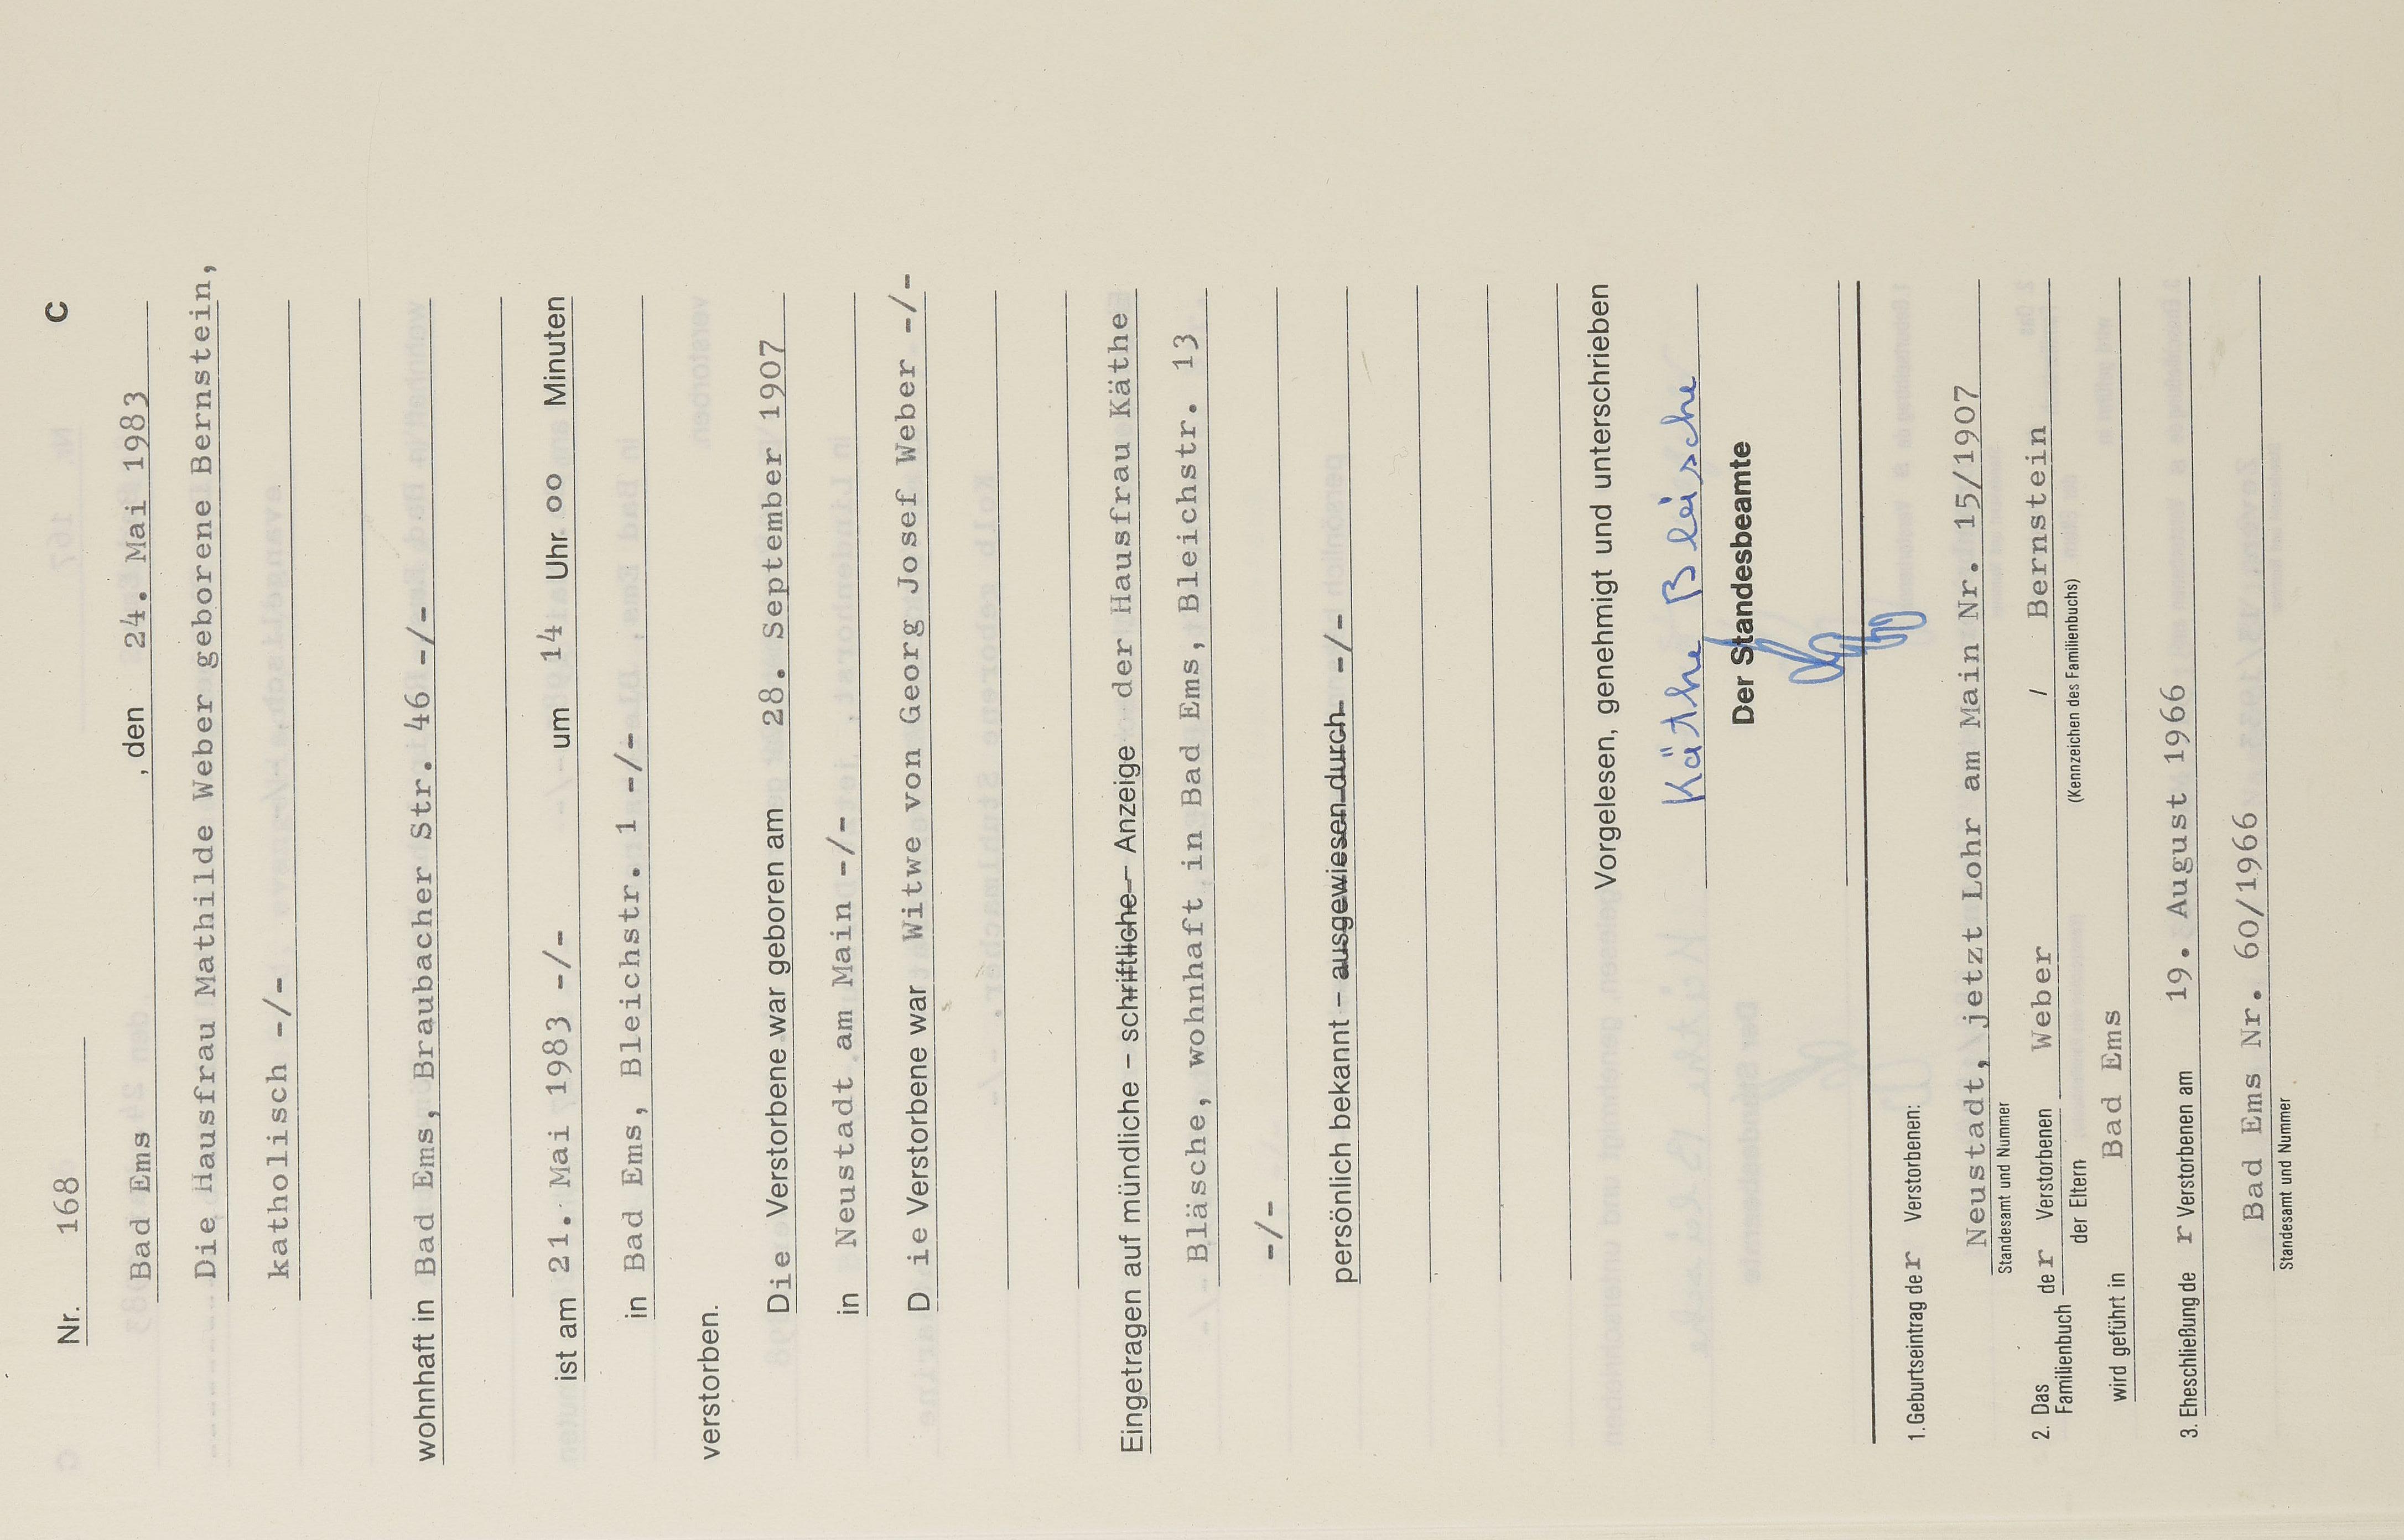 Nr. 168 C
Bad Ems , den 24. Mai 1983
Die Hausfrau Mathilde Weber geborene Bernstein,
katholisch -/-
wohnhaft in Bad Ems, Braubacher Str. 46 -/-
ist am 21. Mai 1983 -/- um 14 Uhr oo Minuten
in Bad Ems, Bleichstr. 1 -/-
verstorben.
Die Verstorbene war geboren am 28. September 1907
in Neustadt am Main -/-
D ie Verstorbene war Witwe von Georg Josef Weber -/-
Eingetragen auf mündliche – schriftliche – Anzeige der Hausfrau Käthe
Bläsche, wohnhaft in Bad Ems, Bleichstr. 13
-/-
persönlich bekannt – ausgewiesen durch -/-
Vorgelesen, genehmigt und unterschrieben
Käthe Bleische
Der Standesbeamte
1. Geburtseintrag der Verstorbenen:
Neustadt, jetzt Lohr am Main Nr. 15/1907
Standesamt und Nummer
2. Das Familienbuch der Verstorbenen Weber / Bernstein
der Eltern (Kennzeichen des Familienbuchs)
wird geführt in Bad Ems
3. Eheschließung de r Verstorbenen am 19. August 1966
Bad Ems Nr. 60/1966
Standesamt und Nummer